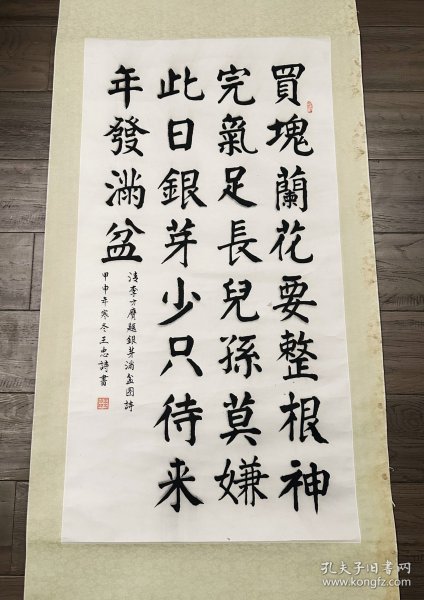 買塊蘭花要整根神
完氣足長兒孫莫嫌
此日銀芽少只待来
年發滿盆
清李方膺題銀芽滿盆图詩
甲申年寒冬王忠诗書
孔夫子旧書网
www.kongfz.com